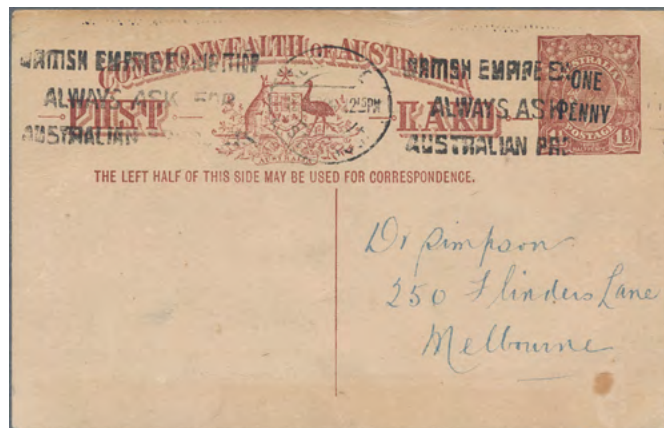 COMMONWEALTH OF AUSTRALIA
BRITISH EMPIRE EX
ALWAYS ASK FOR
AUSTRALIAN
POST CARD
AUSTRALIA
25PM
BRITISH EMPIRE EX
ALWAYS ASK
AUSTRALIAN PRO
ONE
PENNY
AUSTRALIA
POSTAGE
1½
THE LEFT HALF OF THIS SIDE MAY BE USED FOR CORRESPONDENCE.
Dr Simpson
250 Flinders Lane
Melbourne